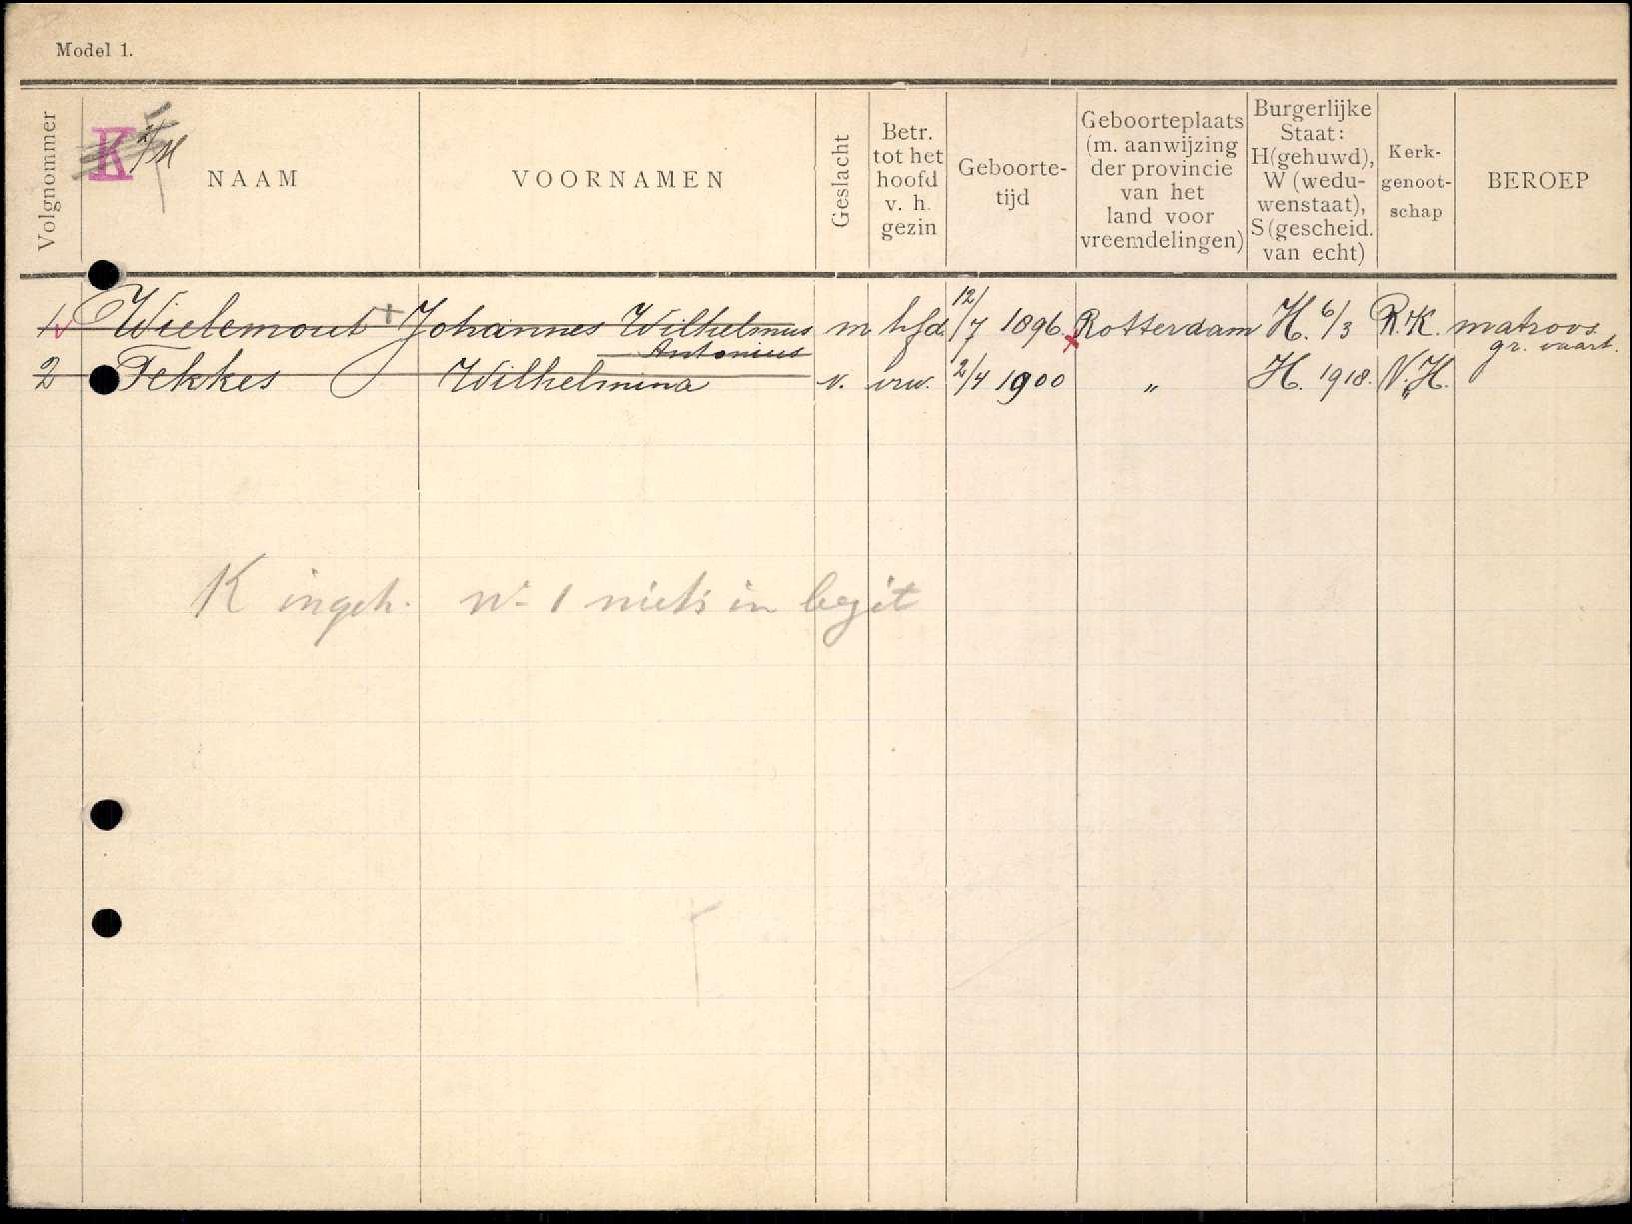 Model 1.
Volgnommer
K
NAAM
VOORNAMEN
Geslacht
Betr.
tot het
hoofd
v. h.
gezin
Geboorte-
tijd
Geboorteplaats
(m. aanwijzing
der provincie
van het
land voor
vreemdelingen)
Burgerlijke
Staat:
H(gehuwd),
W (wedu-
wenstaat),
S (gescheid.
van echt)
Kerk-
genoot-
schap
BEROEP
1 Wielemout Johannes Wilhelmus m hfd. 12/7 1896 Rotterdam H. 6/3 R.K. matroos
Antonius gr. vaart.
2 Fekkes Wilhelmina v. vrw. 2/4 1900 " H. 1918. N.H.
K ingeh. No 1 niets in bezit